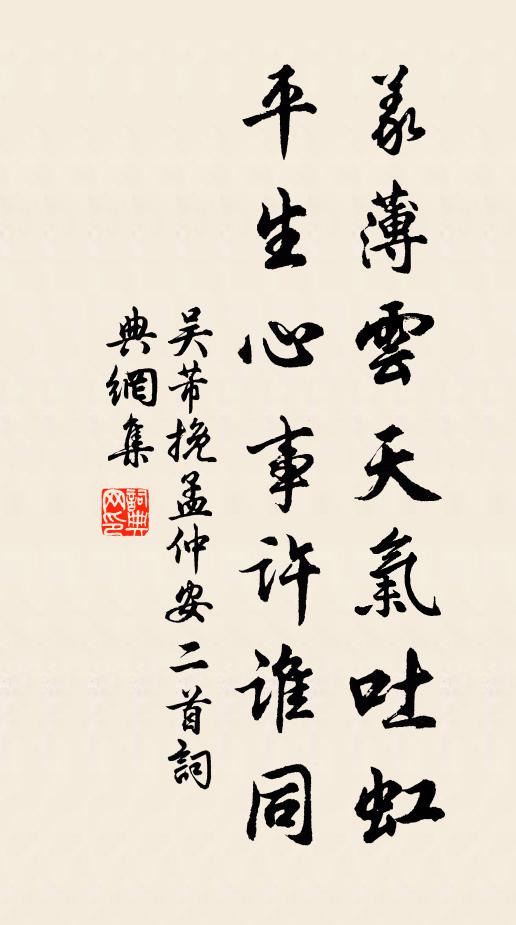 義薄雲天氣吐虹
平生心事許誰同
吳芾挽孟仲安二首詞
典網集
詞典網印